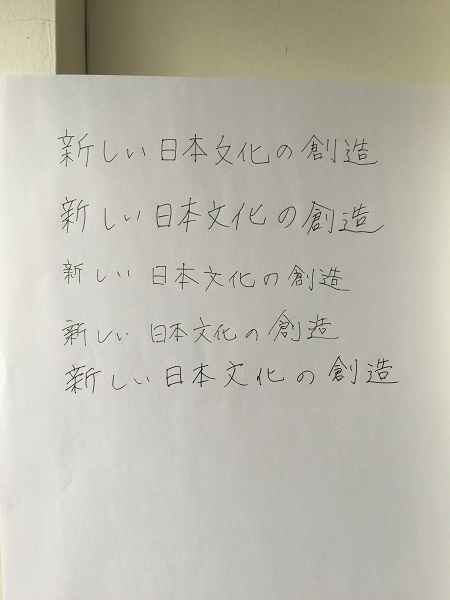 新しい日本文化の創造
新しい日本文化の創造
新しい日本文化の創造
新しい日本文化の創造
新しい日本文化の創造